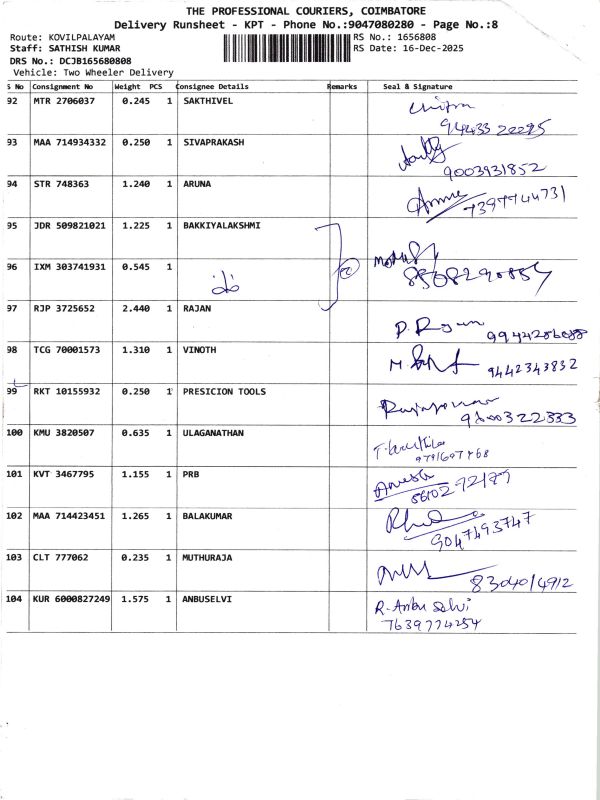 THE PROFESSIONAL COURIERS, COIMBATORE
Delivery Runsheet - KPT - Phone No.:9047080280 - Page No.:8
Route: KOVILPALAYAM RS No.: 1656808
Staff: SATHISH KUMAR RS Date: 16-Dec-2025
DRS No.: DCJB165680808
Vehicle: Two Wheeler Delivery
S No Consignment No Weight PCS Consignee Details Remarks Seal & Signature
92 MTR 2706037 0.245 1 SAKTHIVEL
94433 22295
93 MAA 714934332 0.250 1 SIVAPRAKASH
9003931852
94 STR 748363 1.240 1 ARUNA
7397744731
95 JDR 509821021 1.225 1 BAKKIYALAKSHMI
96 IXM 303741931 0.545 1
97 RJP 3725652 2.440 1 RAJAN
98 TCG 70001573 1.310 1 VINOTH
9442343832
99 RKT 10155932 0.250 1 PRESICION TOOLS
100 KMU 3820507 0.635 1 ULAGANATHAN
101 KVT 3467795 1.155 1 PRB
102 MAA 714423451 1.265 1 BALAKUMAR
9047493747
103 CLT 777062 0.235 1 MUTHURAJA
8304014912
104 KUR 6000827249 1.575 1 ANBUSELVI
R. Anbu Selvi
7639774254